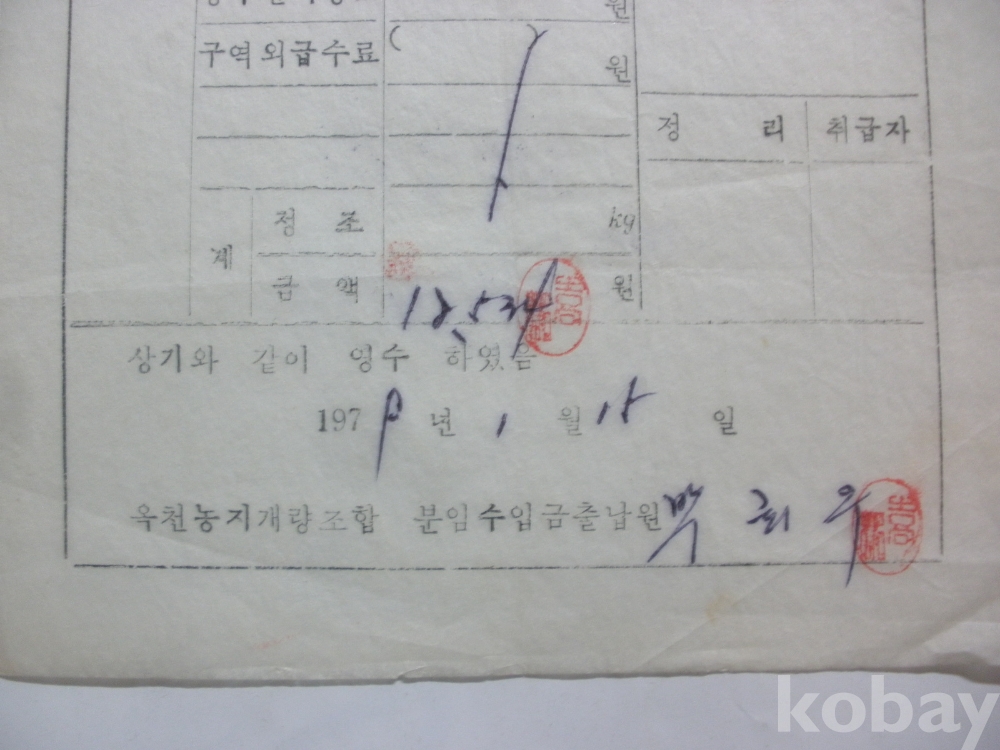 원
구역외급수료 ( ) 원
정 리 취급자
계
정 조 kg
금 액 18,534 원
상기와 같이 영수 하였음
1979년 1월 18일
옥천농지개량조합 분임수입금출납원 박희우
kobay